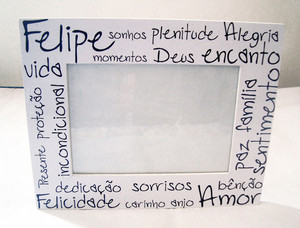 Felipe sonhos plenitude Alegria
momentos Deus encanto
vida
Presente proteção
incondicional
paz família
sentimento
dedicação sorrisos bênção
Felicidade carinho anjo Amor